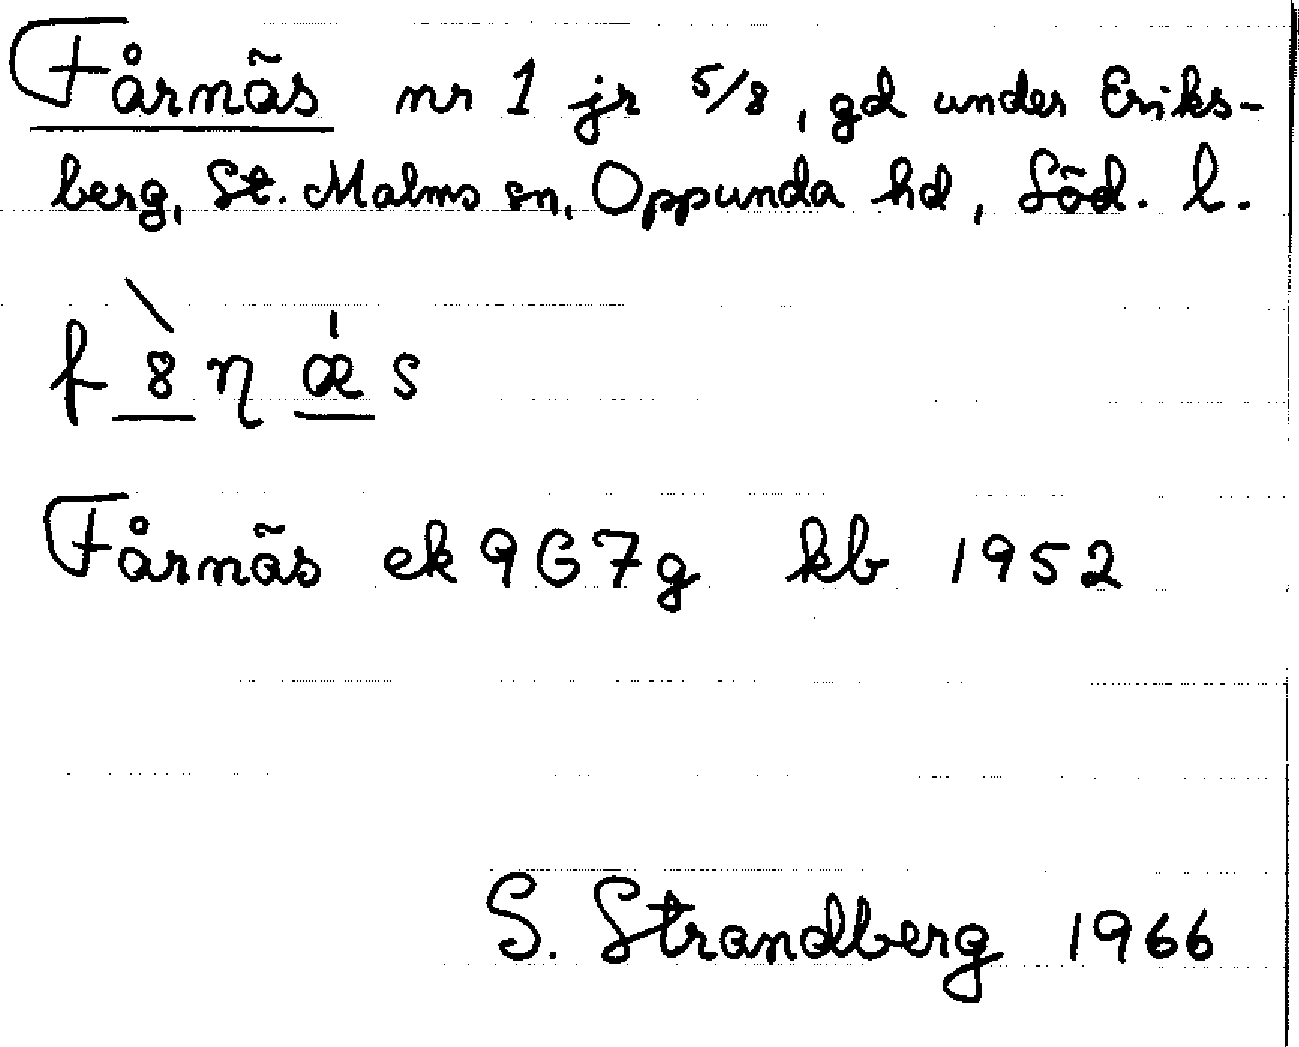 Fårnäs nr 1 jr 5/8, gd under Eriks-
berg, St. Malms sn, Oppunda hd, Söd. l.
f 8 η æ s
Fårnäs ek 9G7g kb 1952
S. Strandberg 1966